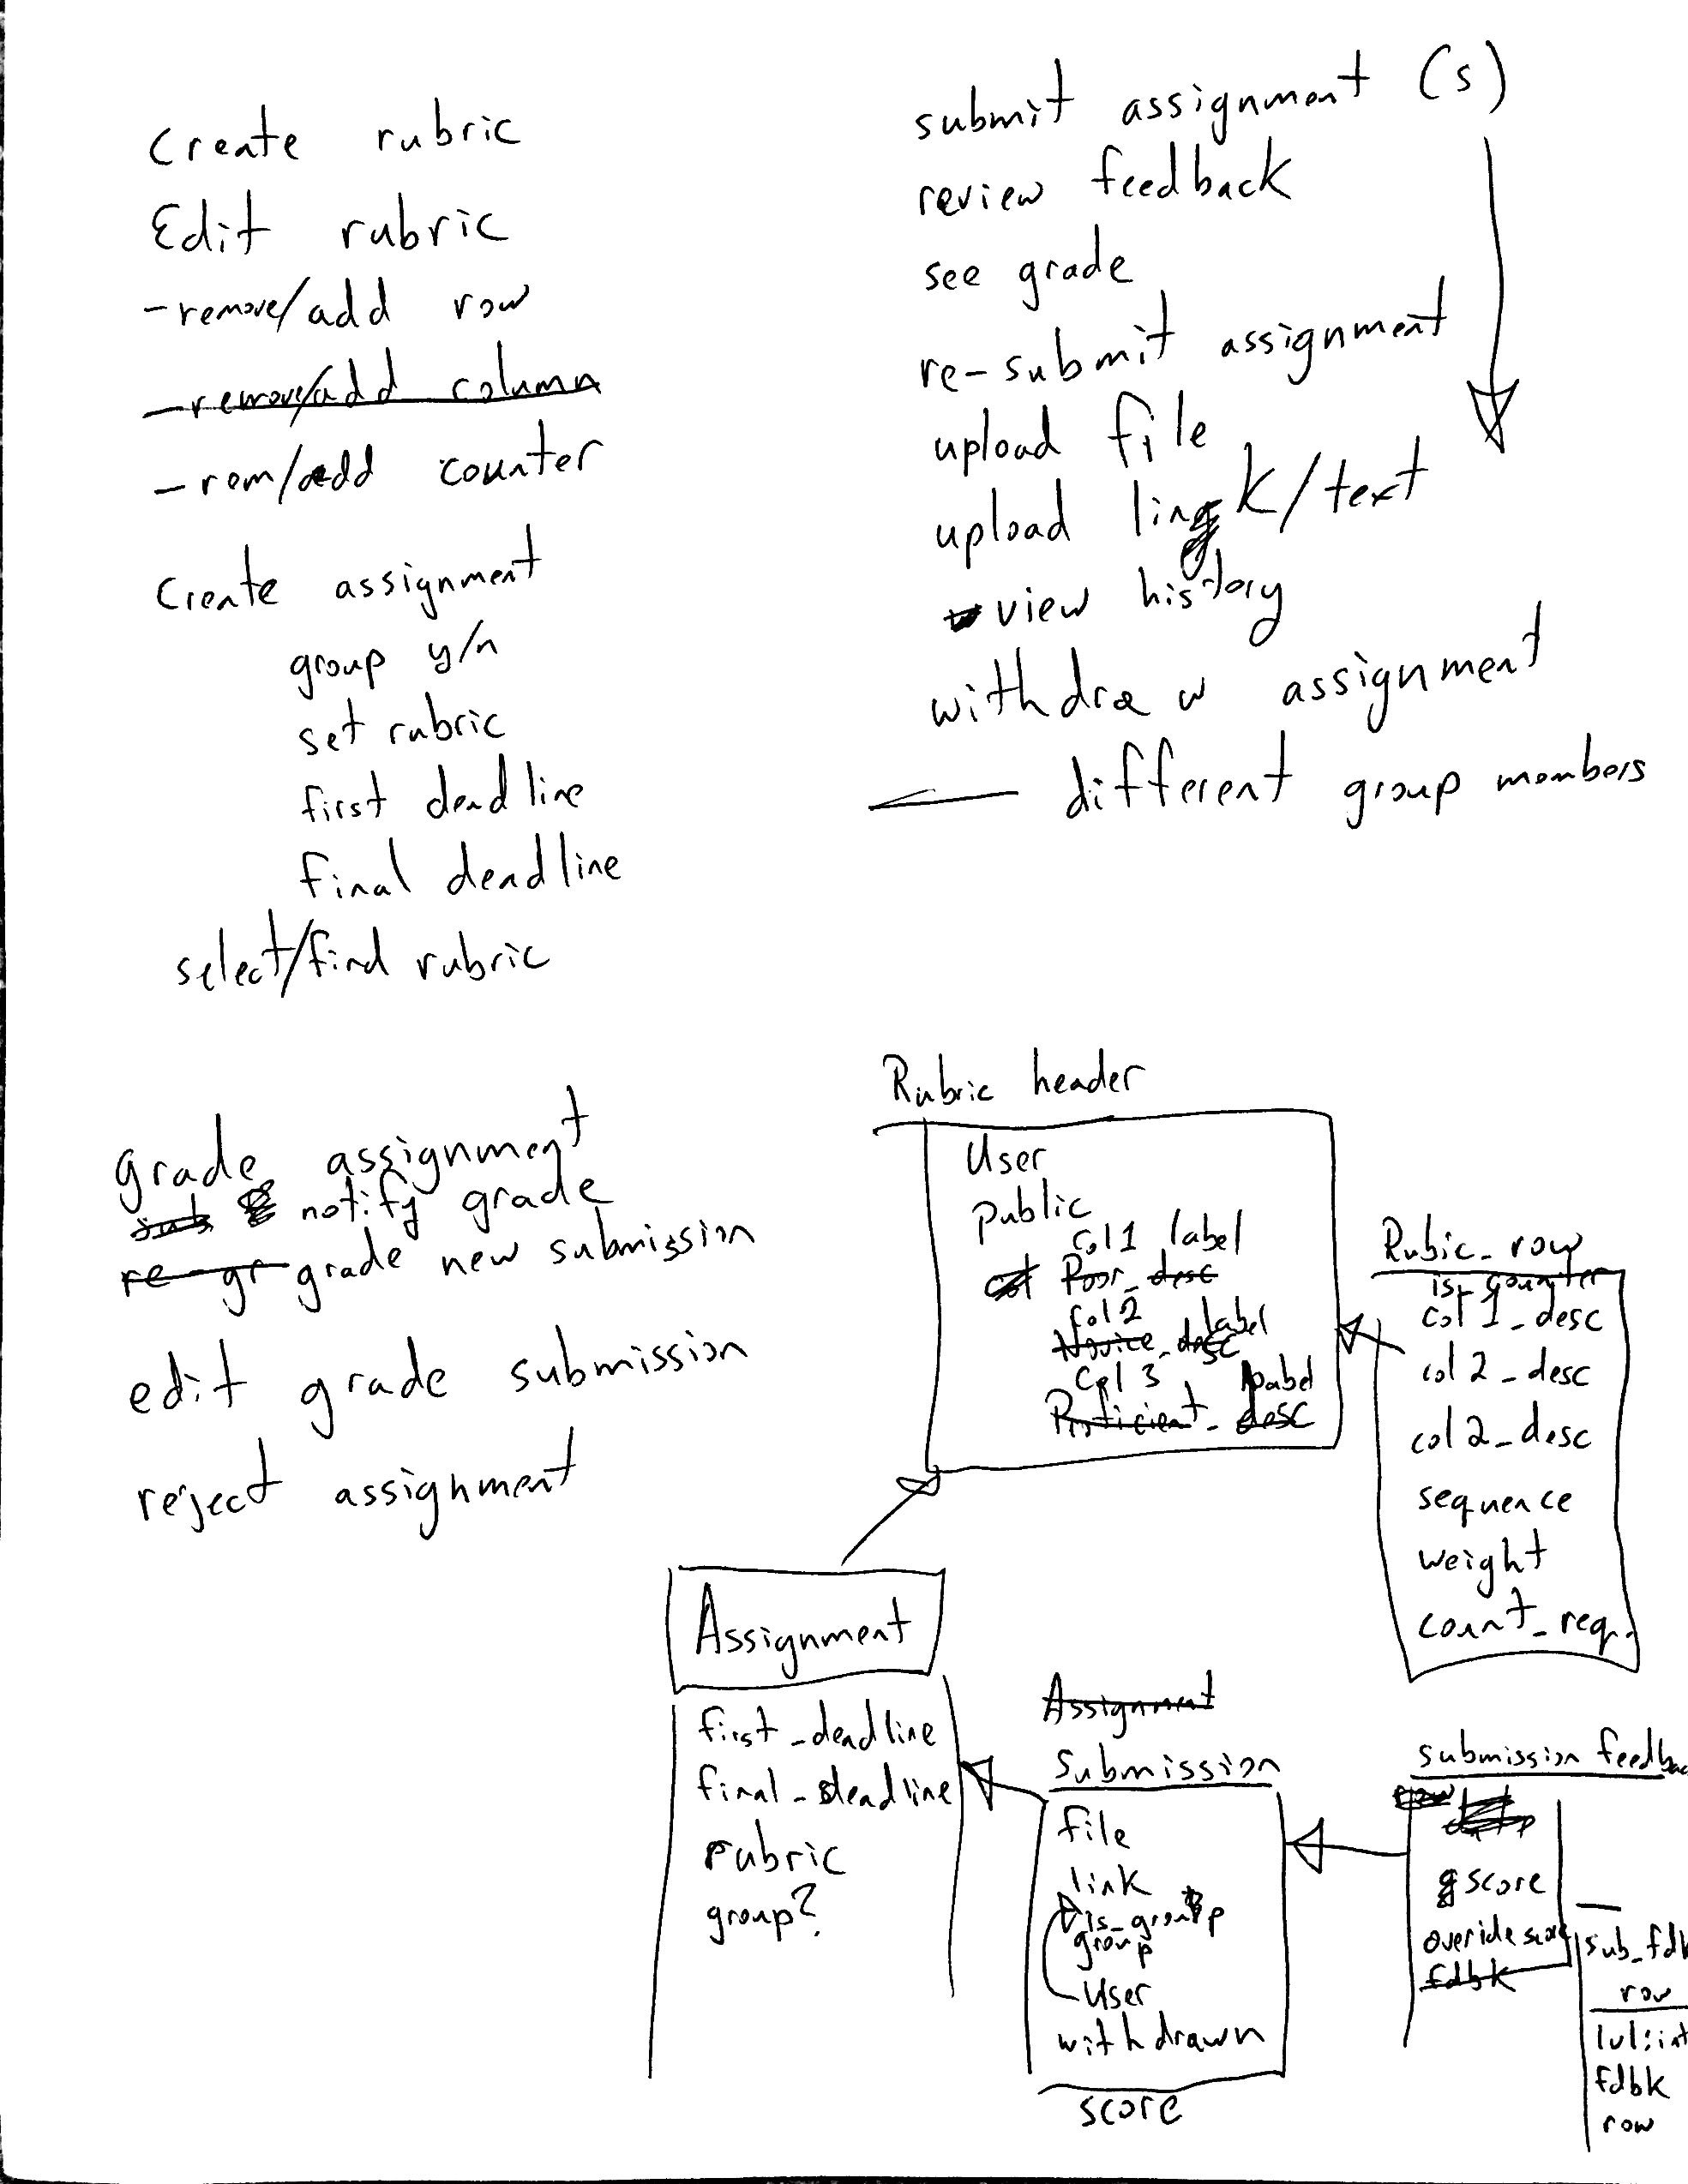 Create rubric
Edit rubric
-remove/add row
-remove/add column
-rem/add counter
Create assignment
group y/n
set rubric
first deadline
final deadline
select/find rubric
submit assignment (s)
review feedback
see grade
re-submit assignment
upload file
upload link/text
view history
withdraw assignment
different group members
grade assignment
sub notify grade
re-gr grade new submission
edit grade submission
reject assignment
Rubric header
User
public
col1 label
col Poor_desc
col2 label
Novice_desc
Col 3 label
Proficient_desc
Rubic_row
is_counter
col1_desc
col2_desc
col2_desc
sequence
weight
count_req.
Assignment
first_deadline
final_deadline
rubric
group?
Assignment
Submission
file
link
is_group
group
User
withdrawn
score
submission feedbac
row
score
override score
fdbk
sub_fdb
row
lvl:int
fdbk
row